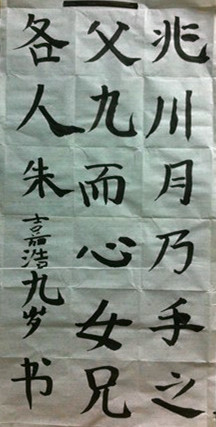 兆川月乃手之
父九而心女兄
各人朱嘉浩九岁书